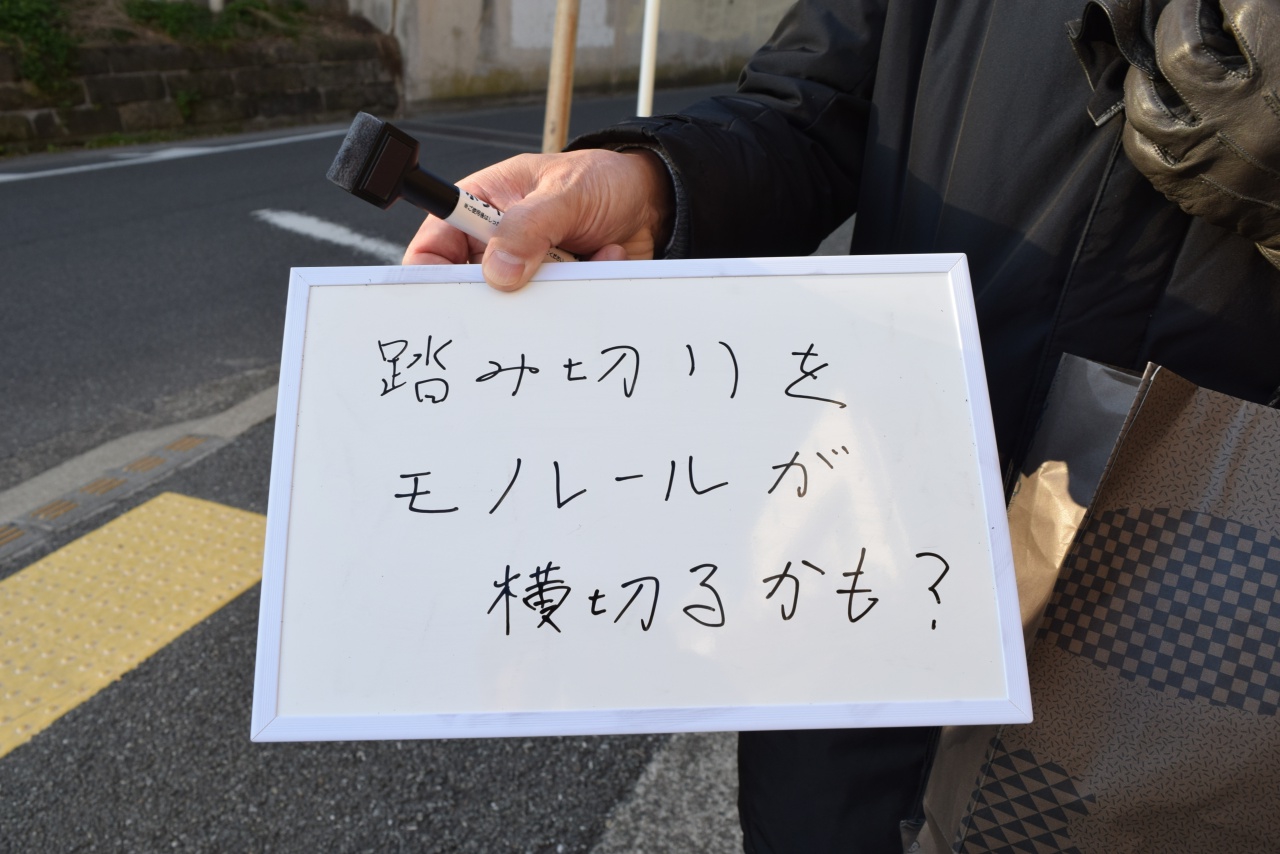 踏み切りを
モノレールが
横切るかも?